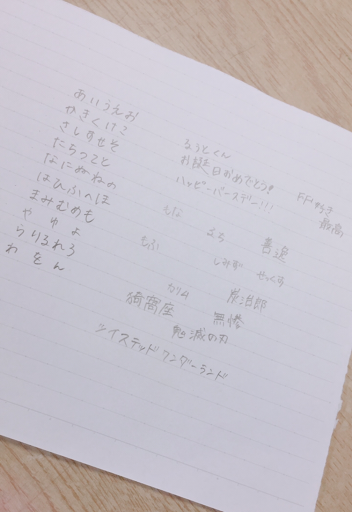 あいうえお
かきくけこ
さしすせそ
たちつてと
なにぬねの
はひふへほ
まみむめも
や ゆ よ
らりるれろ
わ を ん
なうとくん
お誕生日おめでとう!!
ハッピーバースデー!!!
FF好き
最高
もな
まち
善逸
ちふ
しみず
せっくす
カリム
炭治郎
猗窩座
無惨
鬼滅の刃
ツイステッドワンダーランド